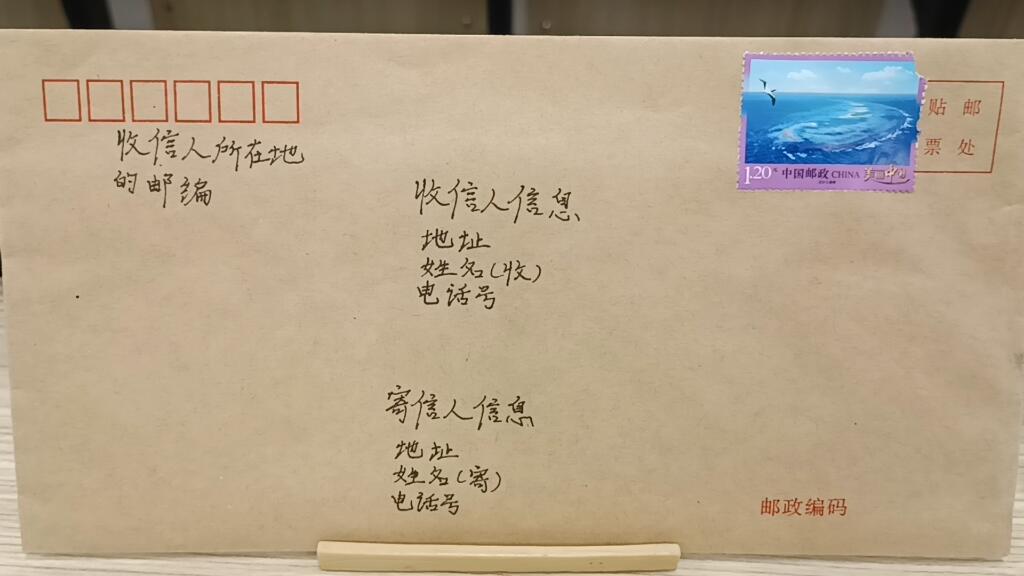 贴 邮
票 处
收信人所在地
的邮编
收信人信息
地址
姓名(收)
电话号
1.20元 中国邮政 CHINA 美丽中国
寄信人信息
地址
姓名(寄)
电话号
邮政编码